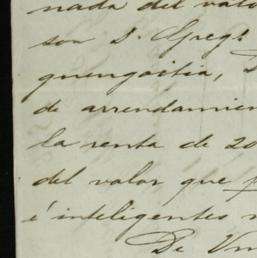 nada del valo
son D. Greg.
quengoitia,
de arrendamien
la renta de 20
del valor que p
é inteligentes
De Vm